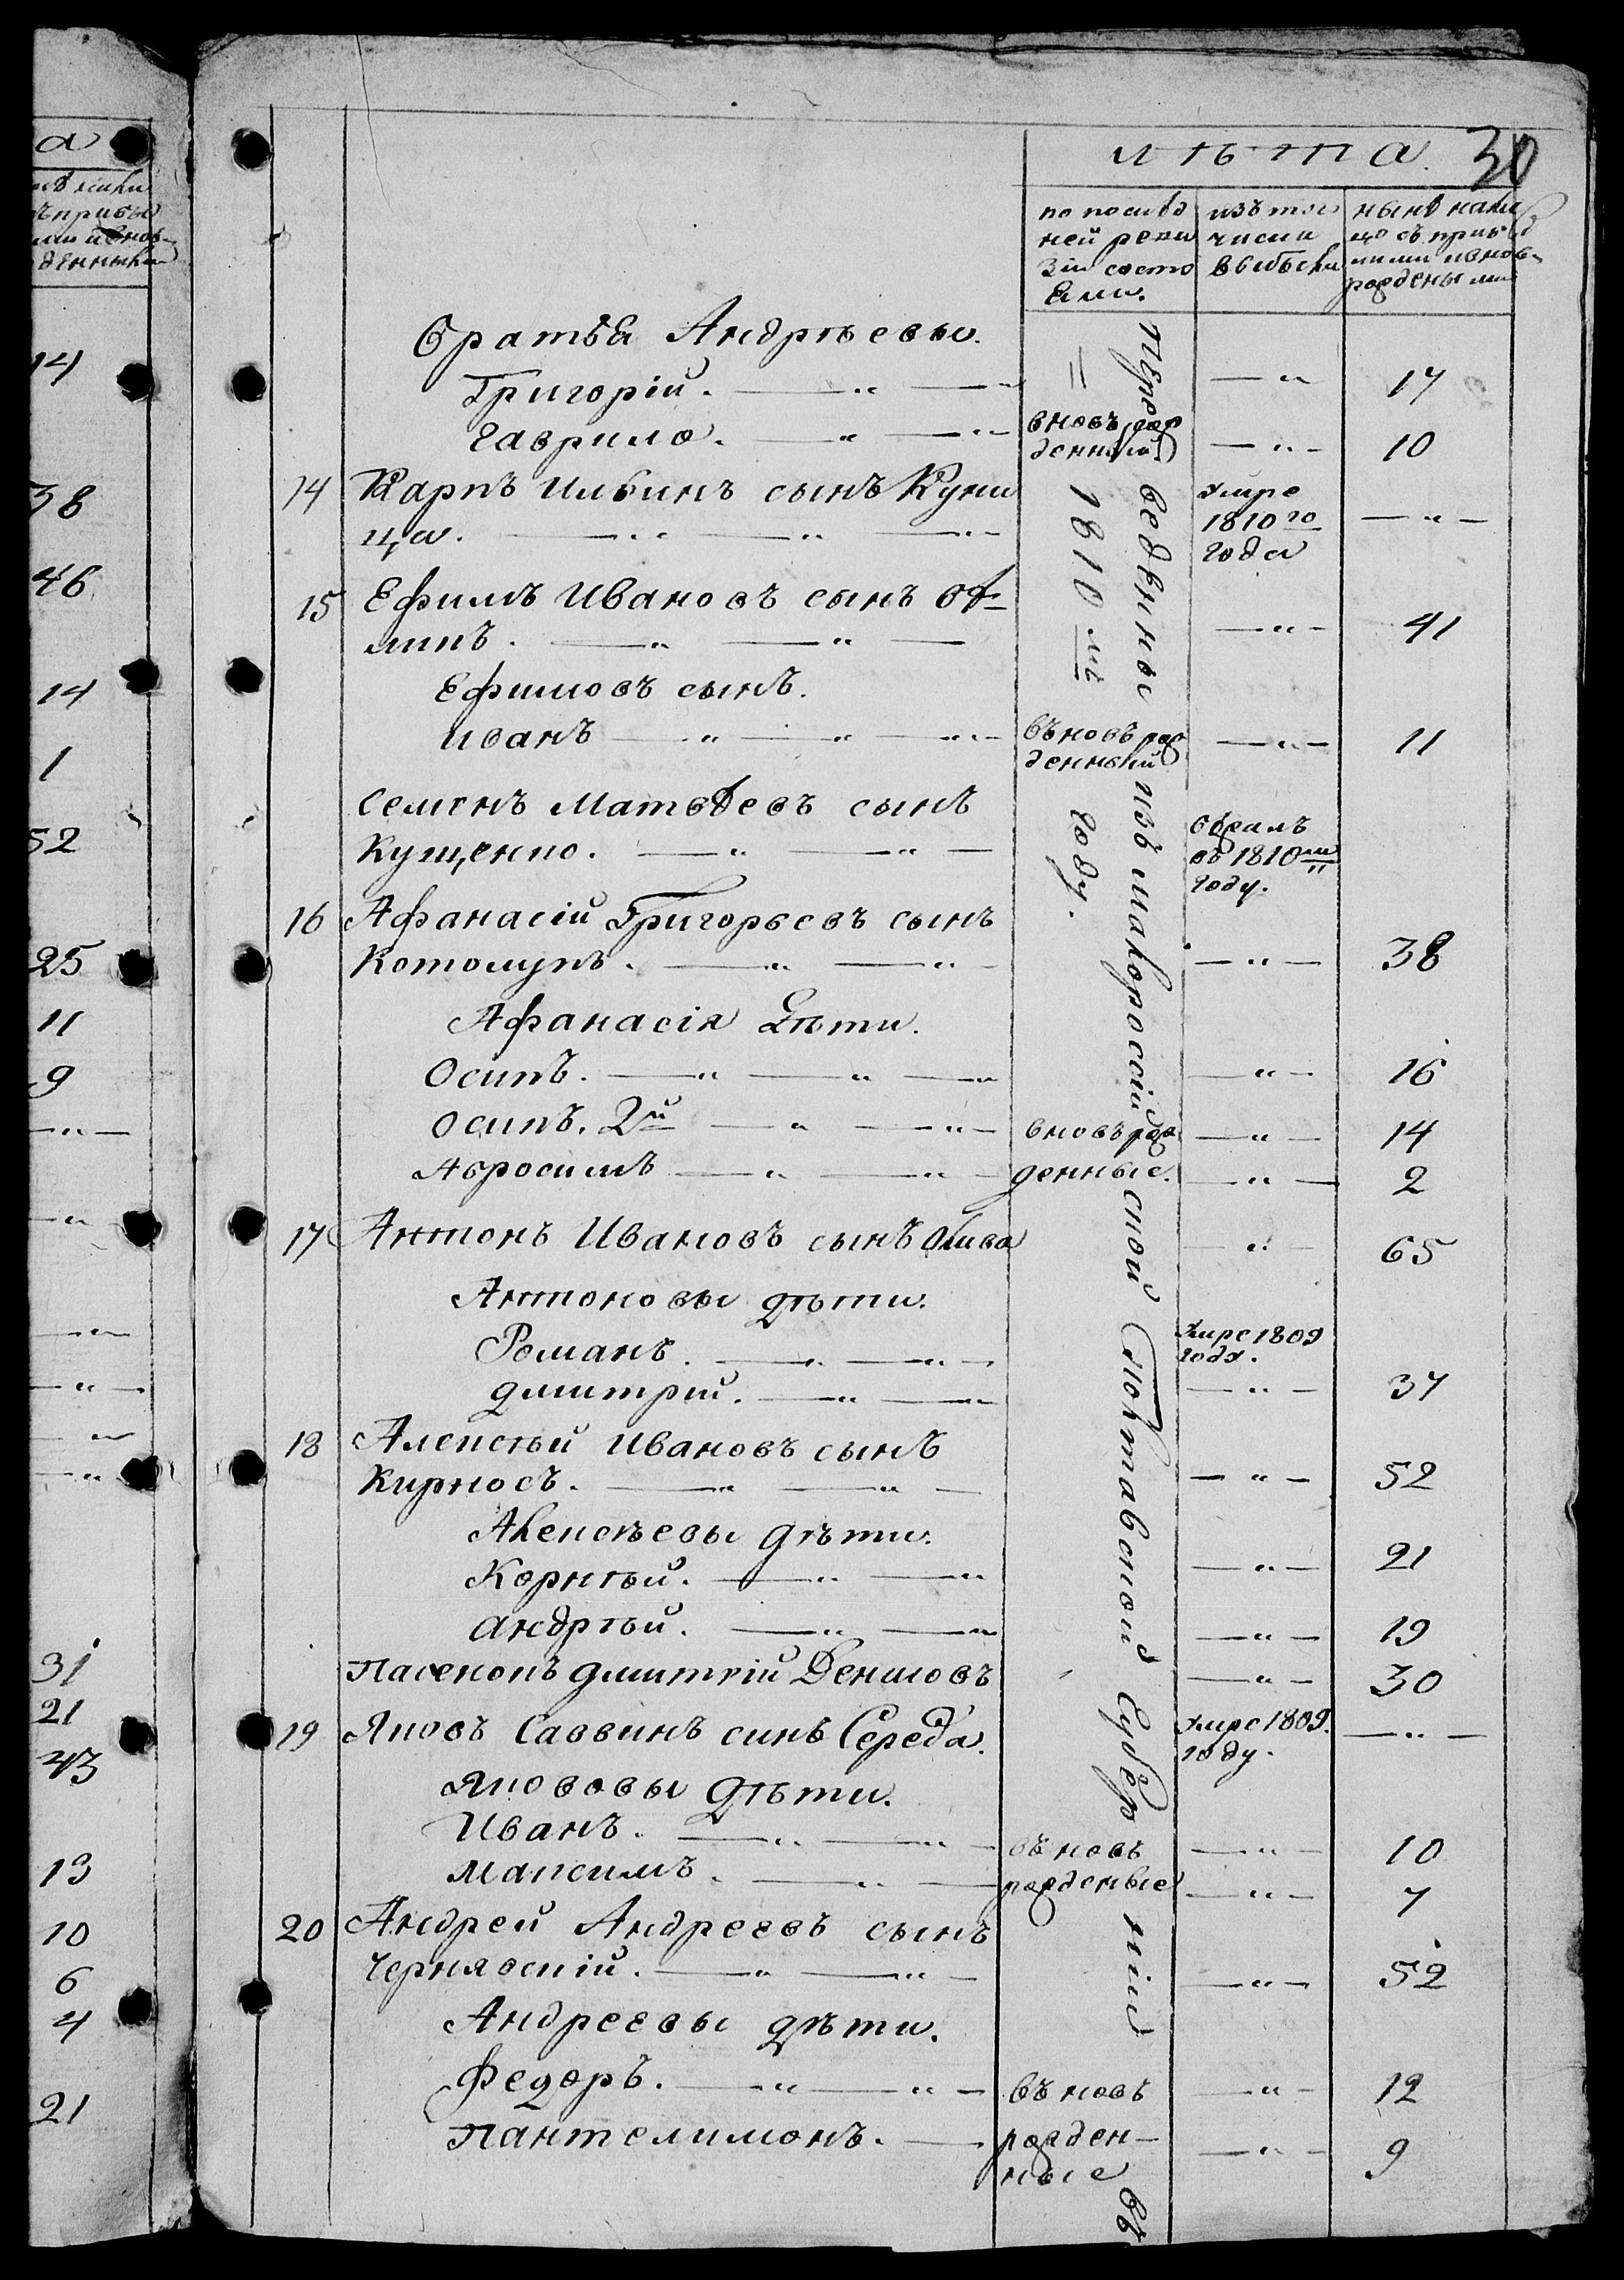 а
14
38
46
14
1
52
25
11
9
31
21
43
13
10
6
4
21
лѣта.
30
по послѣд
ней реви
зіи состо
яли.
изъ того
числа
выбыли
нынѣ нали
цо съ прибы
лыми и внов-
рождеными
братья Андрѣевы.
Григорій. — „ — — „ — 17
Гаврило. — „ — „ вновь рож
денный — „ — 10
14 Карпъ Ильинъ сынъ Куни
ца. — „ — „ — „ —
умре
1810го
года
— „ —
15 Ефимъ Ивановъ сынъ
— „ — „ — — „ — 41
Ефимовъ сынъ.
Иванъ — „ — „ — „ — въновь рож
денный — „ — 11
Семенъ Матвѣевъ сынъ
Кущенко. — „ — „ —
бежалъ
въ 1810м
году.
16 Афанасій Григорьевъ сынъ
Котолупъ. — „ — „ — — „ — 38
Афанасія Дѣти.
Осипъ. — „ — „ — „ — „ — 16
Осипъ. 2й — „ — „ — вновь рож — „ — 14
Абросимъ — „ — „ — денные. — „ — 2
17 Антонъ Ивановъ сынъ Олива — „ — 65
Антоновы дѣти.
Романъ. — „ — „ — умре 1809
года.
Дмитрій. — „ — „ — „ — 37
18 Алексѣй Ивановъ сынъ
Кирносъ. — „ — „ — — „ — 52
Алексѣевы дѣти.
Корнѣй. — „ — „ — „ — 21
Андрѣй. — „ — „ — „ — 19
Пасенокъ Дмитрій Дениловъ — „ — 30
19 Яковъ Саввинъ синъ Середа.
умре 1809.
году.
— „ —
Якововы Дѣти.
Иванъ. — „ — „ — въновь — „ — 10
Максимъ. — „ — рожденые — „ — 7
20 Андрей Андреевъ сынъ
Чернявскій. — „ — „ — — „ — 52
Андреевы дѣти.
Федоръ. — „ — „ — въновь — „ — 12
Пантелимонъ. — рожден-
ные
— „ — 9
переведѣнны изъ малоросcійской Полтавской губер ніи въ
1810 мъ году.